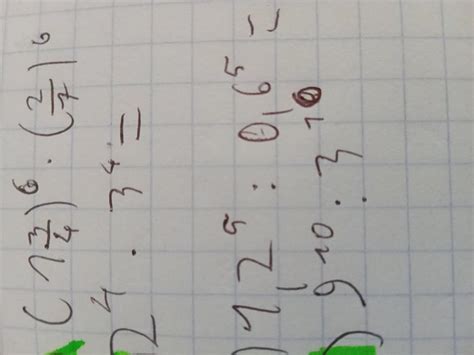 (1 3/4)⁶ · (2/7)⁶
2⁴ · 3⁴ =
) 1,2⁵ : 0,6⁵ =
) 9¹⁰ : 3¹⁰